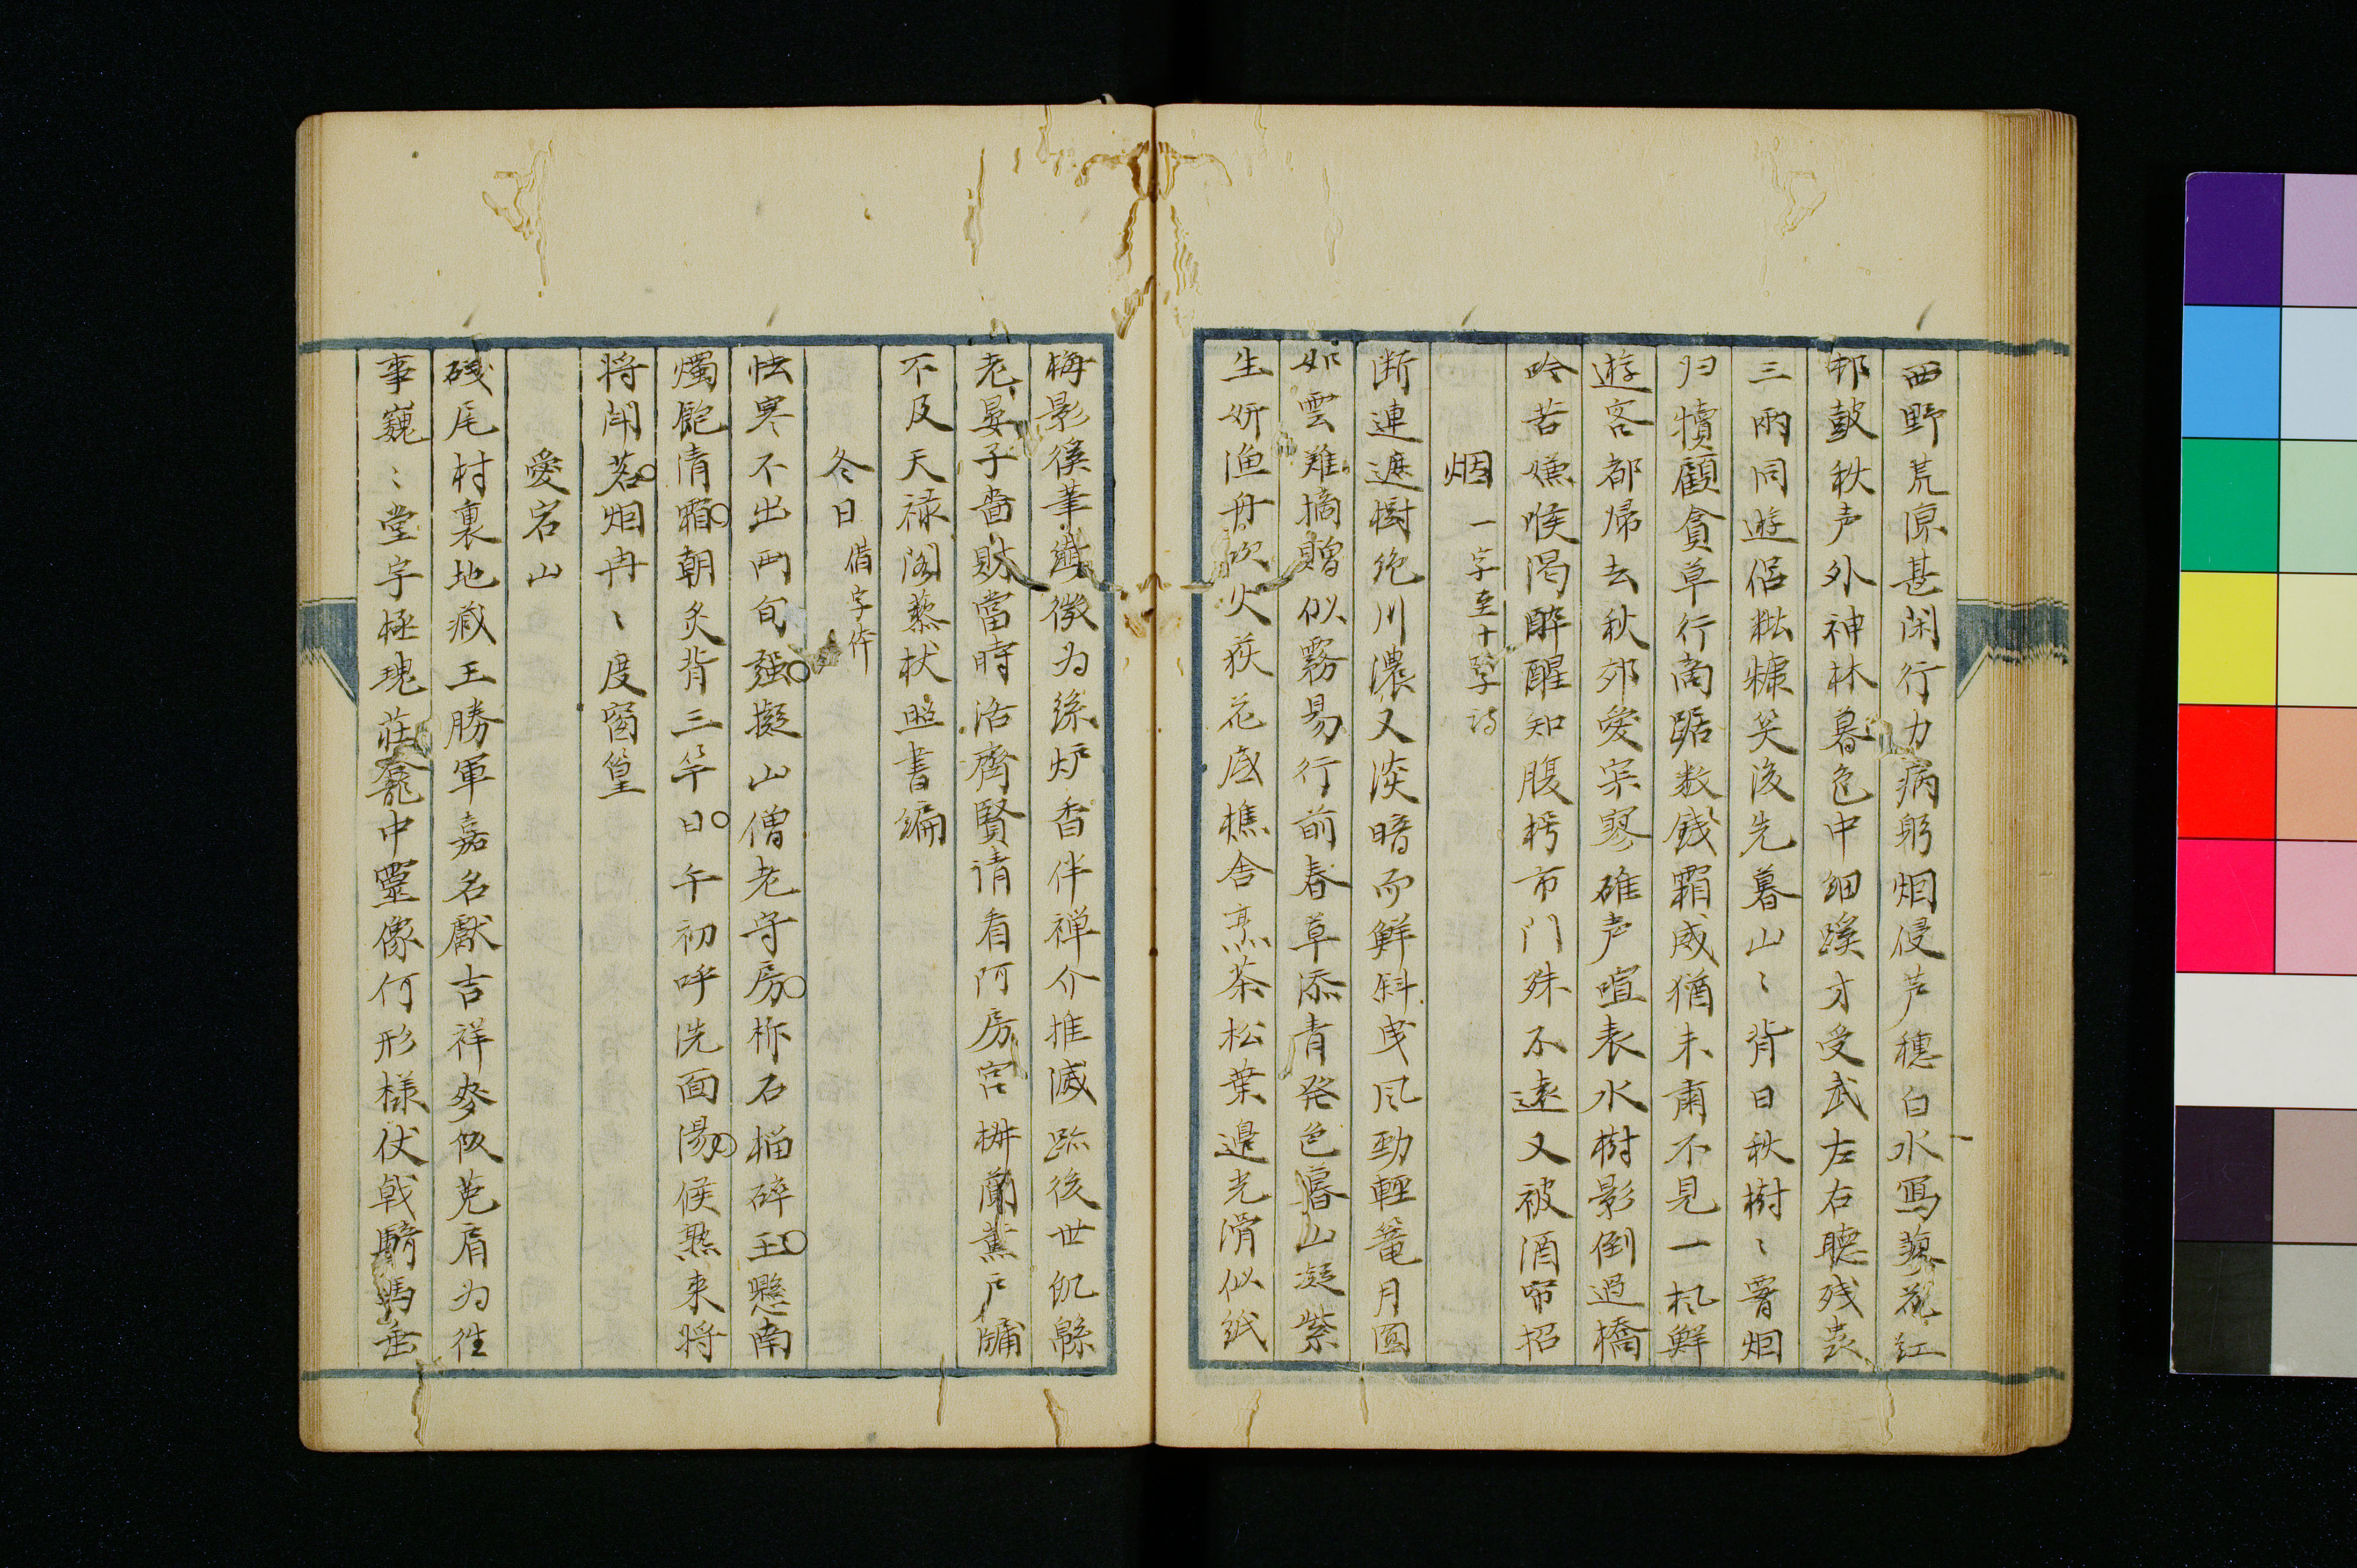 西野荒原甚閑行力病躬烟侵芦穗白水寫蓼花紅
邨鼓秋声外神林暮色中細蹊才受武左右聽残虫
三兩同遊侶粃糠笑後先暮山〻背日秋樹〻賢烟
归犢顧貪草行商踞数錢霜威猶未肅不見一楓鮮
遊客都帰去秋郊愛寂寥碓声喧表水樹影倒過橋
吟苦嫌喉渇醉醒知腹枵市门殊不遠又被酒帘招
烟 一字至十字詩
断連遮樹絶川濃又淡暗而鮮斜曳风勁輕篭月圓
如雲難摘贈似霧易行前春草添青発色暮山凝紫
生妍渔舟吹火荻花底樵舎烹茶松葉邊光滑似紙
梅影徯筆巍微为綠炉香伴禅介推滅跡後世飢緜
老晏子啬財當時活齊賢请看阿房宮栟蘭薫戸牖
不及天禄阁藜杖照書编
冬日 借字作
怯寒不出両旬强擬山僧老守房柝石榴碎玉懸南
燭飽清霜朝炙背三竿日午初呼洗面湯候熟来將
将閑茗烟冉〻度窗篁
愛宕山
磯尾村裏地蔵王勝軍嘉名獻吉祥麥似兎肩为往
事巍〻堂宇極瑰莊龕中霊像何形様伏戟騎馬垂